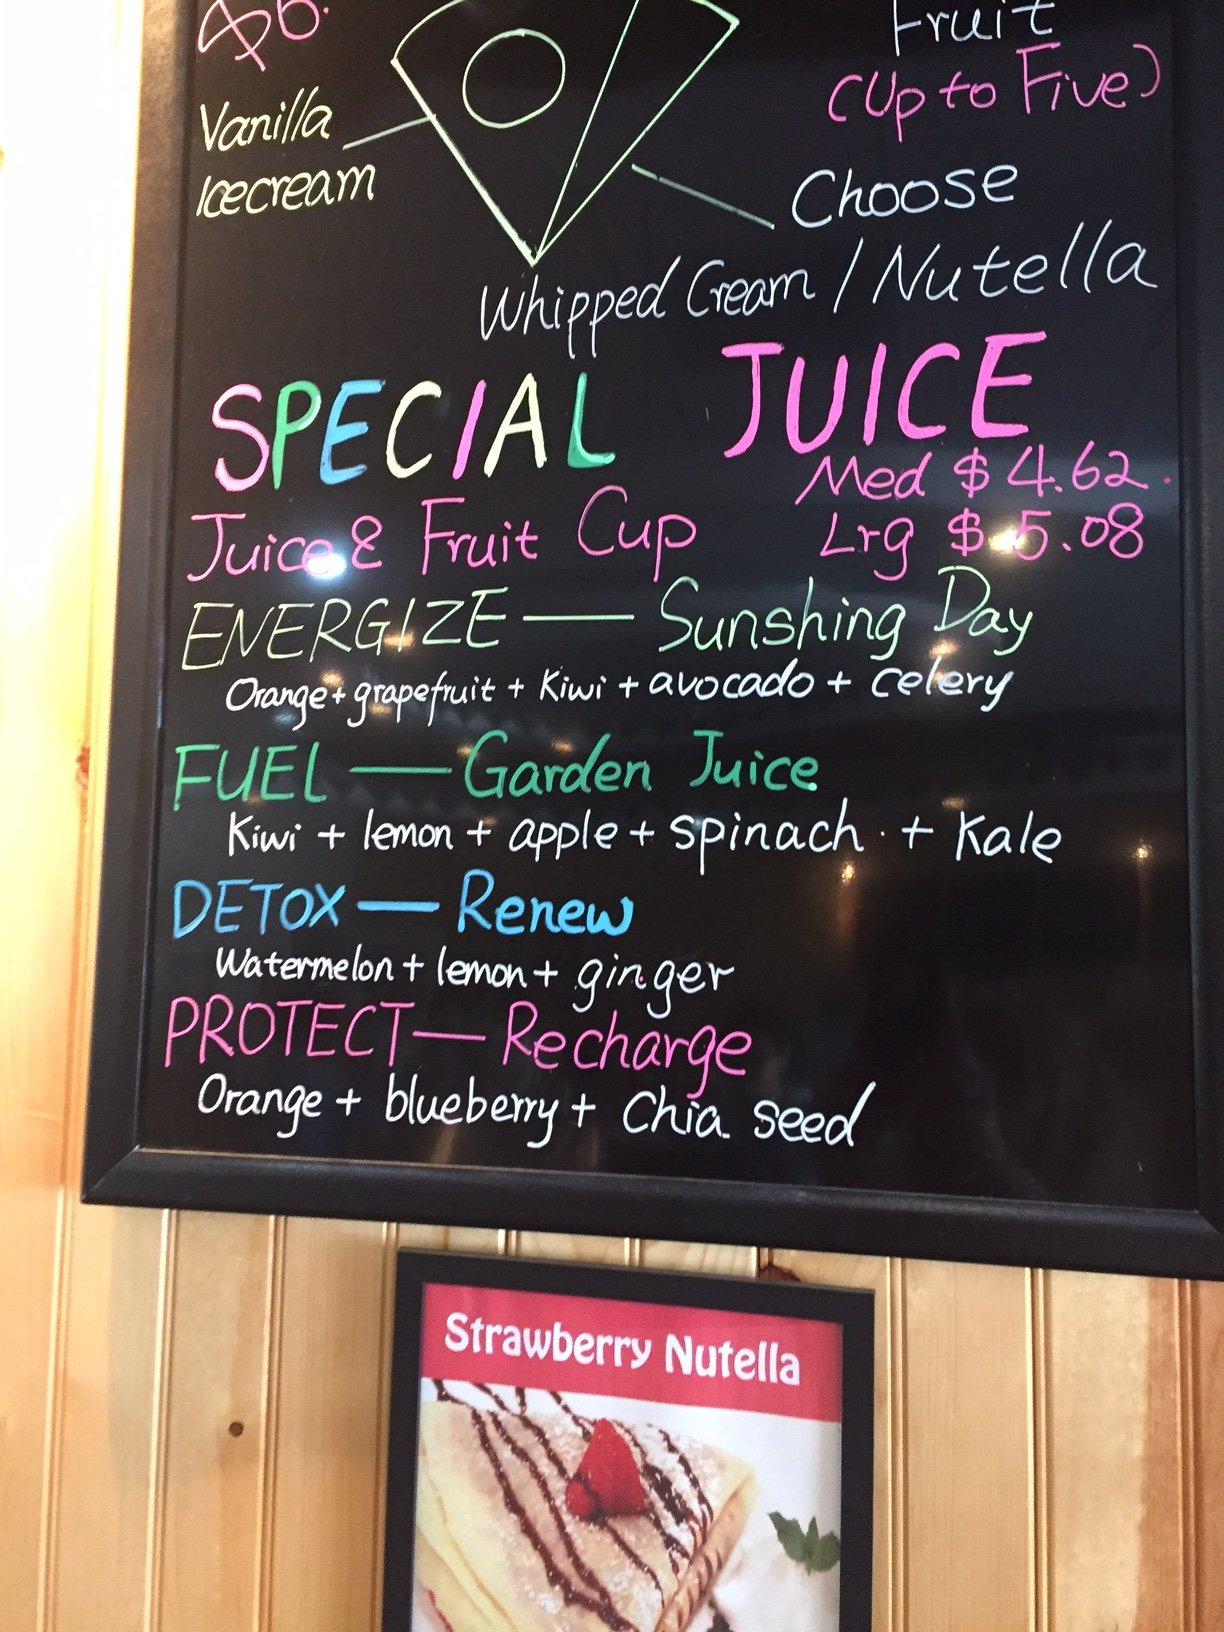 $6.
Fruit
(Up to Five)
Vanilla
Icecream
Choose
Whipped Cream / Nutella
SPECIAL JUICE
Med $4.62.
Juice & Fruit Cup
Lrg $5.08
ENERGIZE — Sunshing Day
Orange + grapefruit + Kiwi + avocado + celery
FUEL — Garden Juice
Kiwi + lemon + apple + spinach + Kale
DETOX — Renew
Watermelon + lemon + ginger
PROTECT — Recharge
Orange + blueberry + Chia seed
Strawberry Nutella